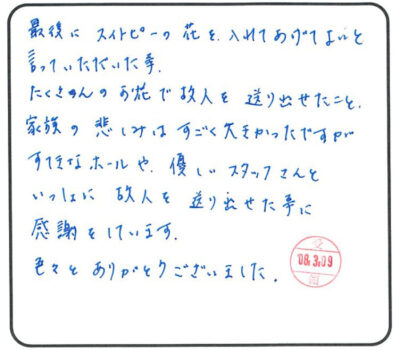 最後に スイトピーの 花を、入れてあげて下さいと
言っていただいた事、
たくさんの お花で 故人を 送り出せたこと、
家族の 悲しみは すごく大きかったですが
すてきなホールや、優しいスタッフさんと
いっしょに 故人を 送り出せた事に
感謝をしています。
色々と ありがとうございました。
08.3.09